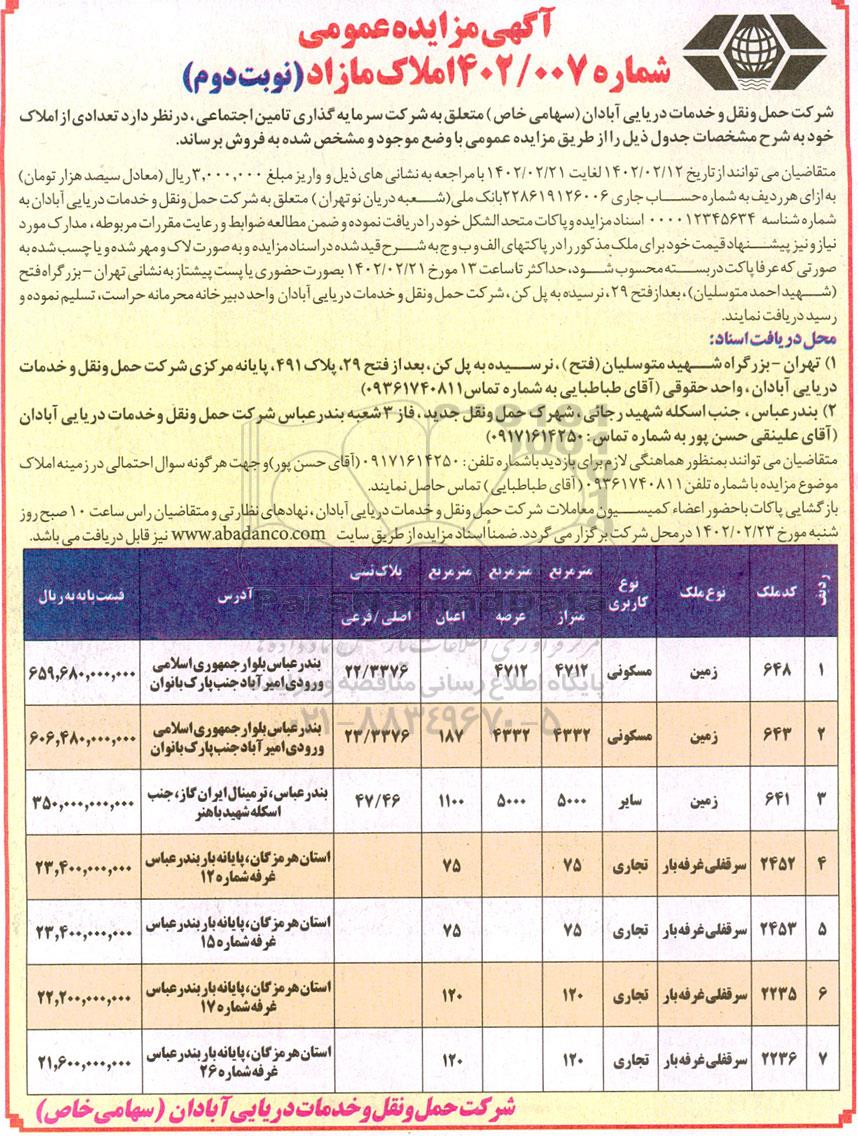 آگهی مزایده عمومی
شماره ۴۰۲/۰۰۷ املاک مازاد (نوبت دوم)
شرکت حمل ونقل و خدمات دریایی آبادان (سهامی خاص) متعلق به شرکت سرمایه گذاری تامین اجتماعی، در نظر دارد تعدادی از املاک
خود به شرح مشخصات جدول ذیل را از طریق مزایده عمومی با وضع موجود و مشخص شده به فروش برساند.
متقاضیان می توانند از تاریخ ۱۴۰۲/۰۲/۱۲ لغایت ۱۴۰۲/۰۲/۲۱ با مراجعه به نشانی های ذیل و واریز مبلغ ۳,۰۰۰,۰۰۰ ریال (معادل سیصد هزار تومان)
به ازای هر ردیف به شماره حساب جاری ۲۲۸۶۱۹۱۲۶۰۰۶ بانک ملی (شعبه دریان نو تهران) متعلق به شرکت حمل ونقل و خدمات دریایی آبادان به
شماره شناسه ۰۰۰۰۱۲۳۴۵۶۳۴ اسناد مزایده و پاکات متحدالشکل خود را دریافت نموده و ضمن مطالعه ضوابط و رعایت مقررات مربوطه، مدارک مورد
نیاز و نیز پیشنهاد قیمت خود برای ملک مذکور را در پاکتهای الف و ب و ج به شرح قید شده در اسناد مزایده و به صورت لاک و مهر شده و یا چسب شده به
صورتی که عرفا پاکت در بسته محسوب شود، حداکثر تا ساعت ۱۳ مورخ ۱۴۰۲/۰۲/۲۱ بصورت حضوری یا پست پیشتاز به نشانی تهران - بزرگراه فتح
(شهید احمد متوسلیان)، بعد از فتح ۲۹، نرسیده به پل کن، شرکت حمل ونقل و خدمات دریایی آبادان واحد دبیرخانه محرمانه حراست، تسلیم نموده و
رسید دریافت نمایند.
محل دریافت اسناد:
۱) تهران - بزرگراه شهید متوسلیان (فتح)، نرسیده به پل کن، بعد از فتح ۲۹، پلاک ۴۹۱، پایانه مرکزی شرکت حمل ونقل و خدمات
دریایی آبادان، واحد حقوقی (آقای طباطبایی به شماره تماس ۰۹۳۶۱۷۴۰۸۱۱)
۲) بندرعباس، جنب اسکله شهید رجائی، شهرک حمل ونقل جدید، فاز ۳ شعبه بندرعباس شرکت حمل ونقل و خدمات دریایی آبادان
(آقای علینقی حسن پور به شماره تماس: ۰۹۱۷۱۶۱۴۲۵۰)
متقاضیان می توانند بمنظور هماهنگی لازم برای بازدید با شماره تلفن: ۰۹۱۷۱۶۱۴۲۵۰ (آقای حسن پور) و جهت هرگونه سوال احتمالی در زمینه املاک
موضوع مزایده با شماره تلفن ۰۹۳۶۱۷۴۰۸۱۱ (آقای طباطبایی) تماس حاصل نمایند.
بازگشایی پاکات با حضور اعضاء کمیسیون معاملات شرکت حمل ونقل و خدمات دریایی آبادان، نهادهای نظارتی و متقاضیان راس ساعت ۱۰ صبح روز
شنبه مورخ ۱۴۰۲/۰۲/۲۳ در محل شرکت برگزار می گردد. ضمناً اسناد مزایده از طریق سایت www.abadanco.com نیز قابل دریافت می باشد.
ردیف کد ملک نوع ملک نوع کاربری متر مربع متراژ متر مربع عرصه متر مربع اعیان پلاک ثبتی اصلی/فرعی آدرس قیمت پایه به ریال
۱ ۶۴۸ زمین مسکونی ۴۷۱۲ ۴۷۱۲ ۲۲/۳۳۷۶ بندرعباس بلوار جمهوری اسلامی ورودی امیرآباد جنب پارک بانوان ۶۵۹,۶۸۰,۰۰۰,۰۰۰
۲ ۶۴۳ زمین مسکونی ۴۳۳۲ ۴۳۳۲ ۱۸۷ ۲۳/۳۳۷۶ بندرعباس بلوار جمهوری اسلامی ورودی امیرآباد جنب پارک بانوان ۶۰۶,۴۸۰,۰۰۰,۰۰۰
۳ ۶۴۱ زمین سایر ۵۰۰۰ ۵۰۰۰ ۱۱۰۰ ۴۷/۴۶ بندرعباس، ترمینال ایران گاز، جنب اسکله شهید باهنر ۳۵۰,۰۰۰,۰۰۰,۰۰۰
۴ ۲۴۵۲ سرقفلی غرفه بار تجاری ۷۵ ۷۵ استان هرمزگان، پایانه بار بندرعباس غرفه شماره ۱۲ ۲۳,۴۰۰,۰۰۰,۰۰۰
۵ ۲۴۵۳ سرقفلی غرفه بار تجاری ۷۵ ۷۵ استان هرمزگان، پایانه بار بندرعباس غرفه شماره ۱۵ ۲۳,۴۰۰,۰۰۰,۰۰۰
۶ ۲۲۳۵ سرقفلی غرفه بار تجاری ۱۲۰ ۱۲۰ استان هرمزگان، پایانه بار بندرعباس غرفه شماره ۱۷ ۲۲,۲۰۰,۰۰۰,۰۰۰
۷ ۲۲۳۶ سرقفلی غرفه بار تجاری ۱۲۰ ۱۲۰ استان هرمزگان، پایانه بار بندرعباس غرفه شماره ۲۶ ۲۱,۶۰۰,۰۰۰,۰۰۰
شرکت حمل ونقل و خدمات دریایی آبادان (سهامی خاص)
ParsNamadData
پایگاه اطلاع رسانی مناقصه و مزایده
۰۲۱-۸۸۳۴۹۶۷۰-۵